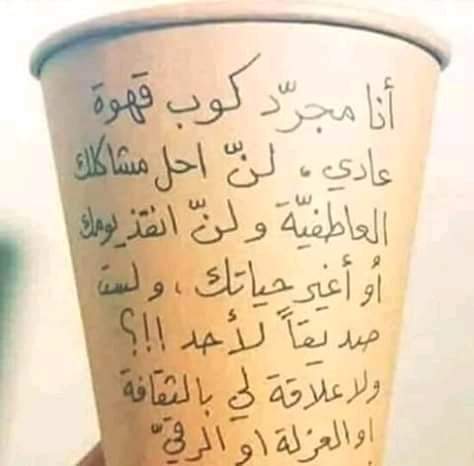 أنا مجرّد كوب قهوة
عادي، لنّ احل مشاكلك
العاطفيّة ولنّ انقذ يومك
أو أغير حياتك، ولست
صديقاً لأحد !!!؟
ولا علاقة لي بالثقافة
او العزلة او الرقيّ